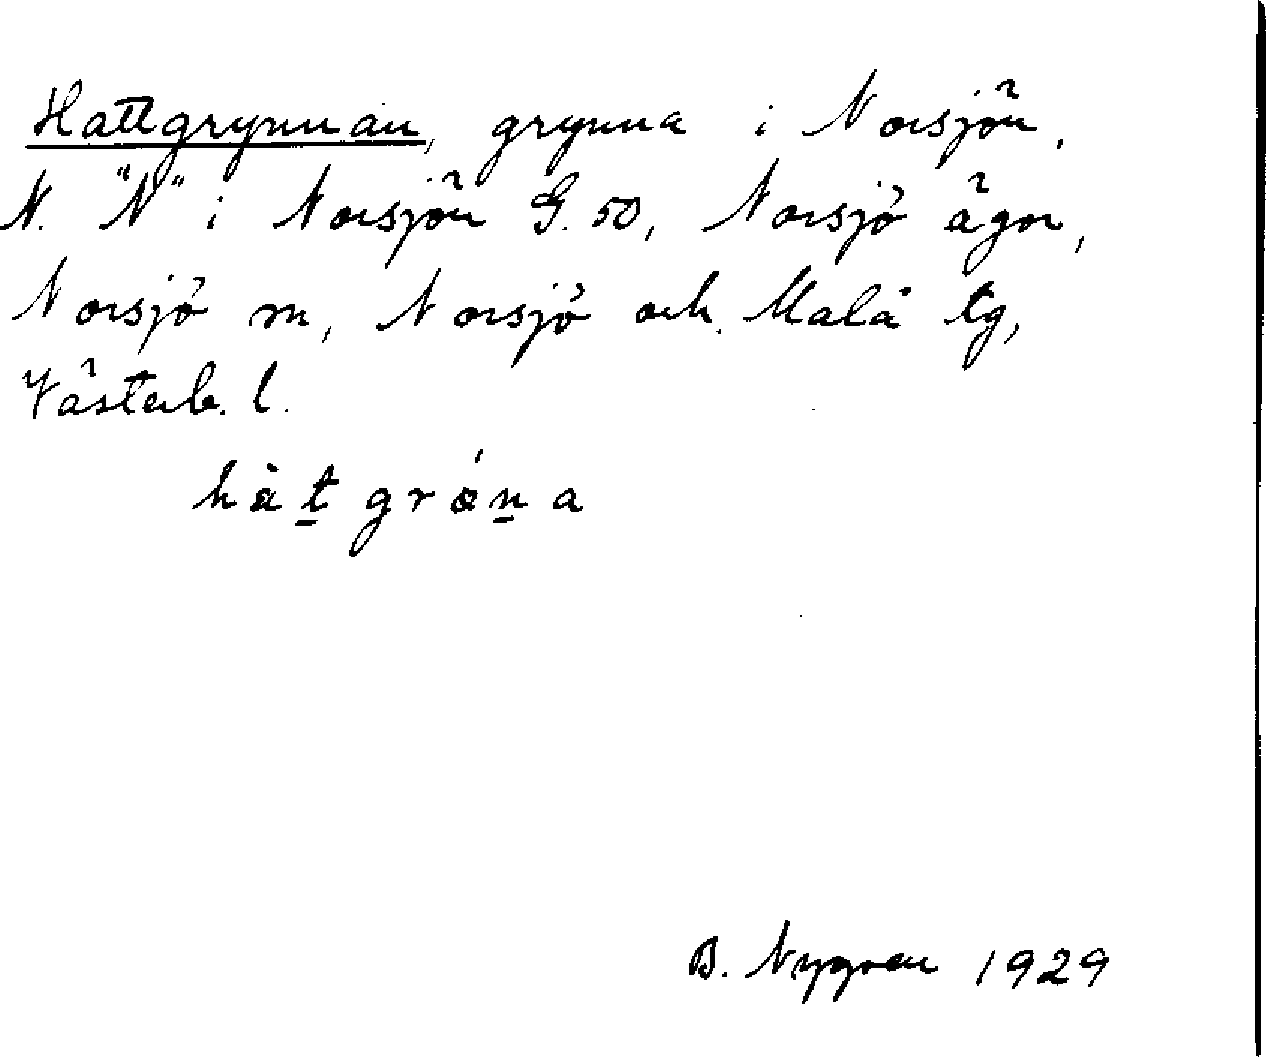 Hattgrynnan, grynna i Norsjön,
N. "N" i Norsjön G. 50, Norsjö ägor,
Norsjö sn, Norsjö och Malå tg,
Västerb. l.
hàt̲ grǿn̲a
B. Nygren 1929